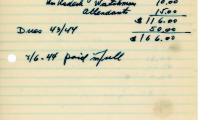 Watchman 10.00
Attendants 15.00
$116.00
Dues 43/44 50.00
$166.00
7/6-44 paid in full